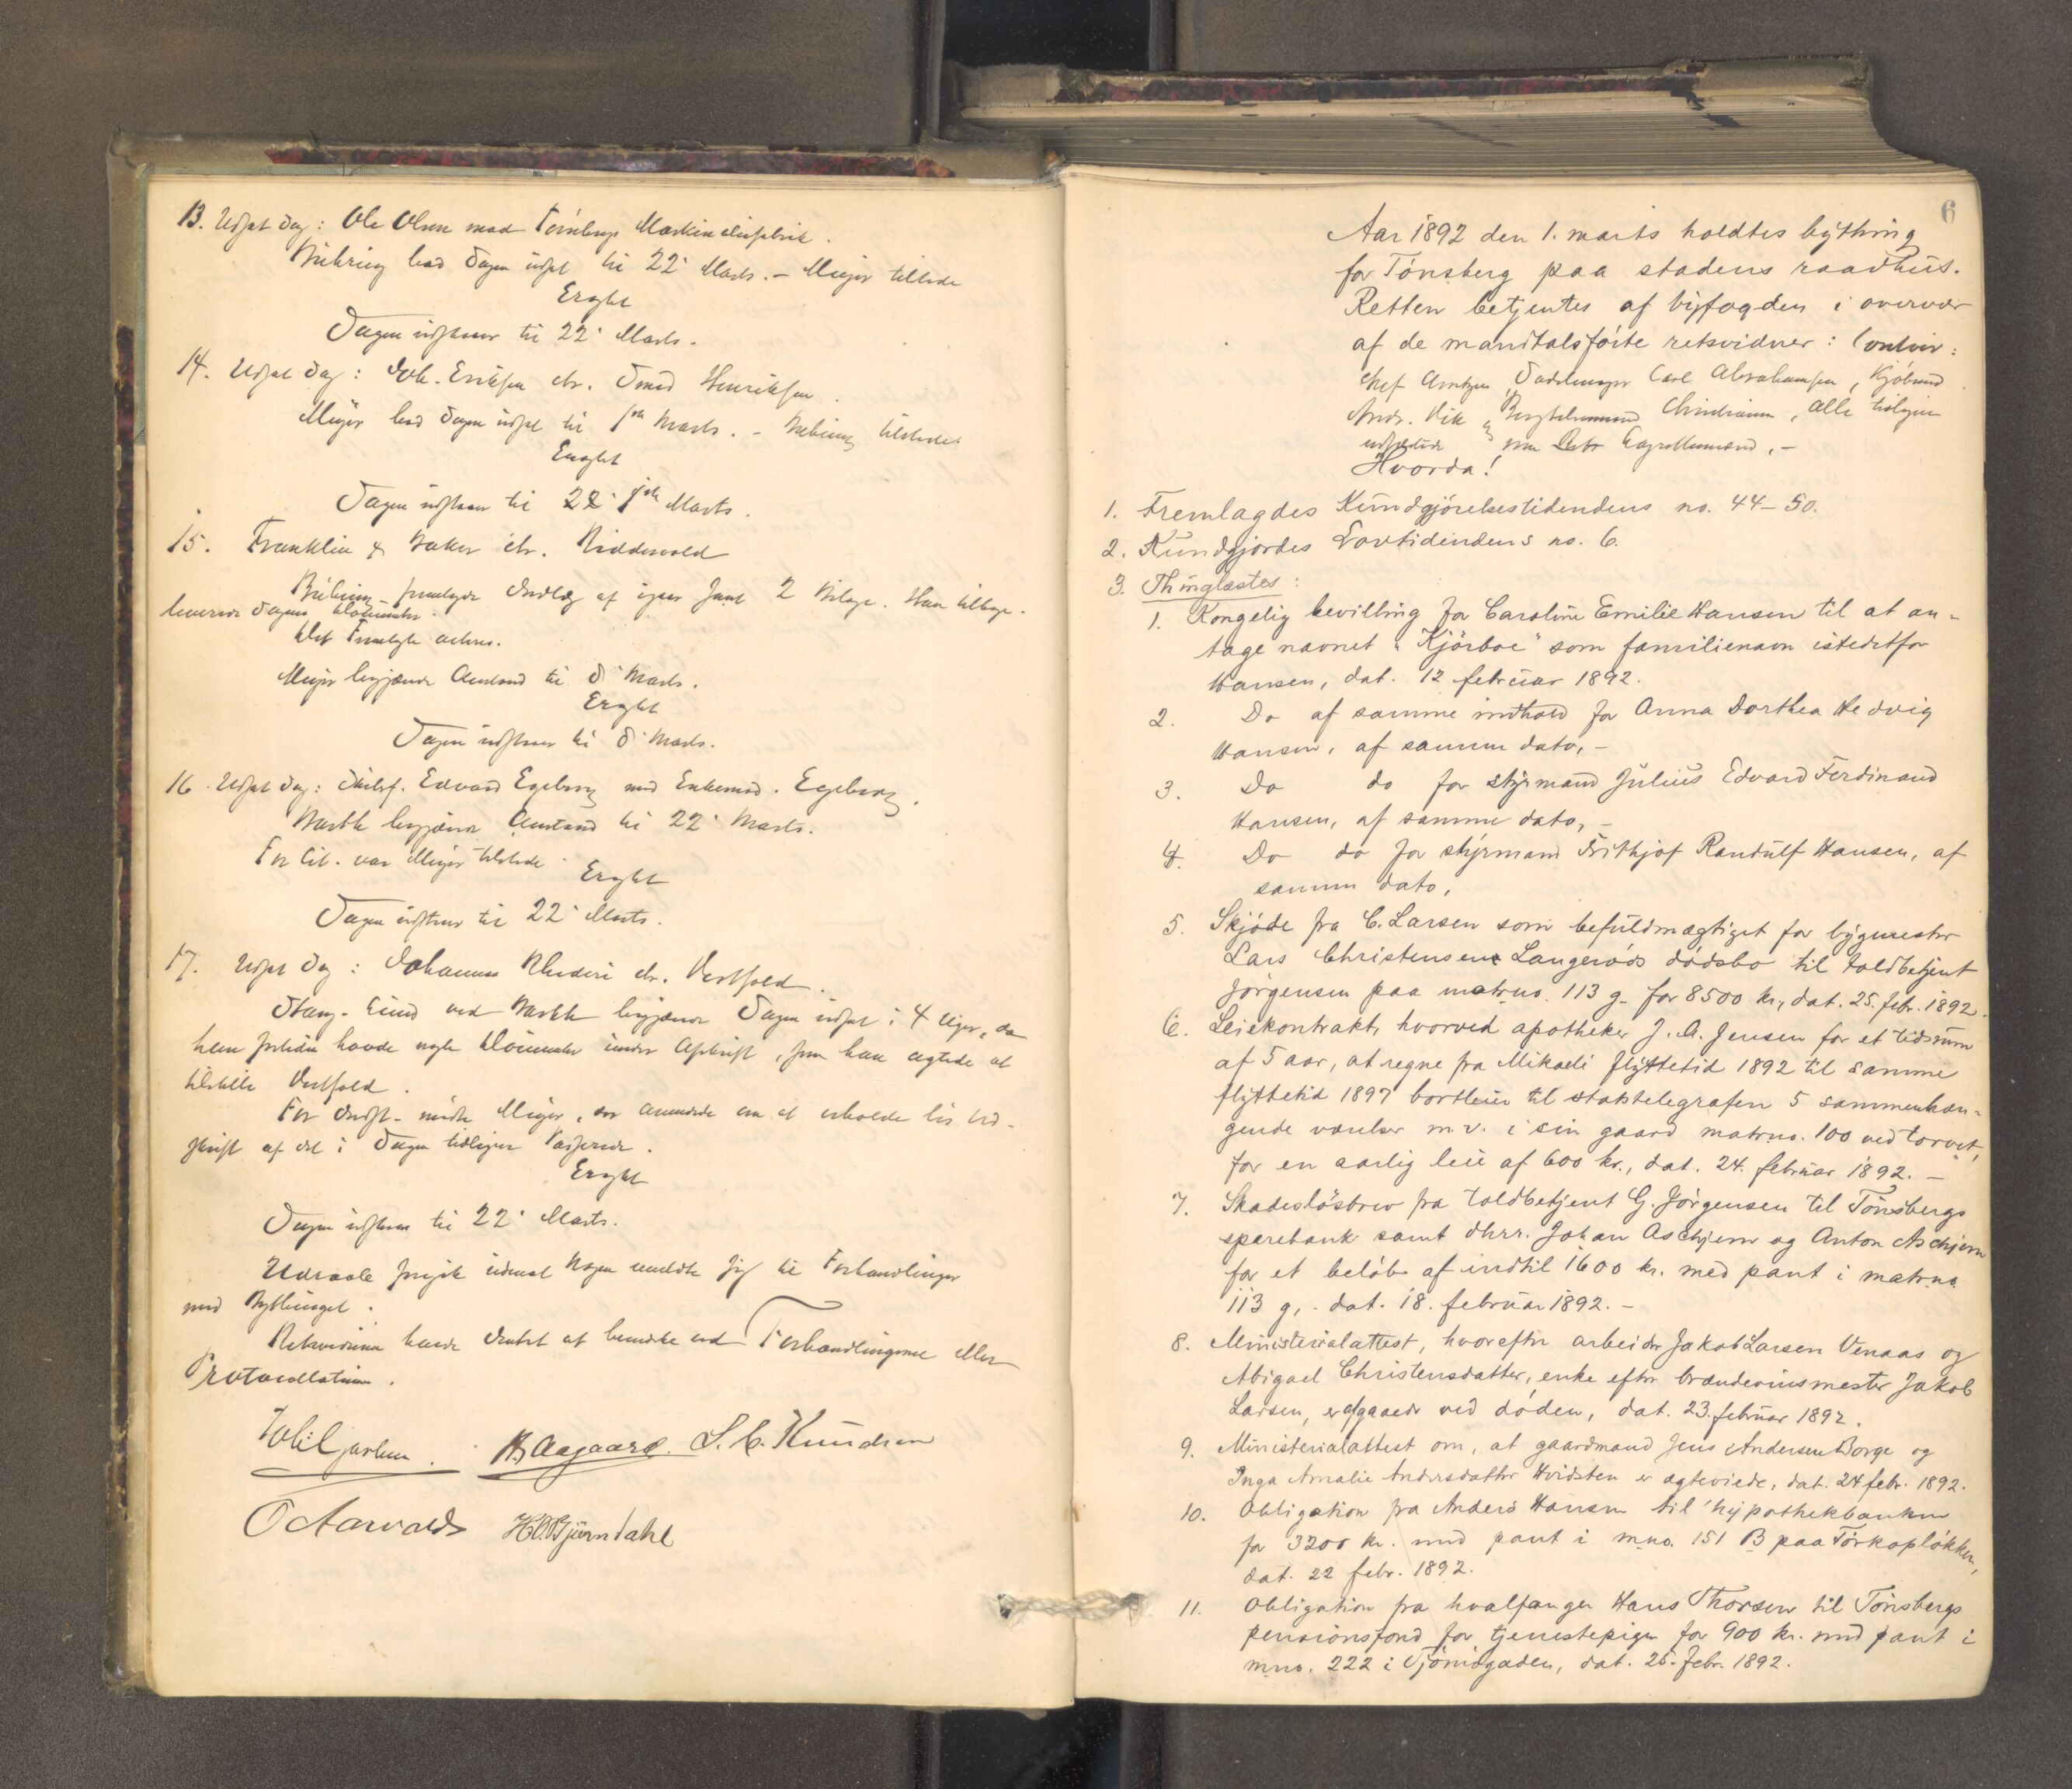 13. Udsat Sag: Ole Olsen mod Mærkindustrifabrik.
bad Sagen udsat til 22' Marts. – Meyer tilstede
Eragtet
Sagen udsættes til 22' Marts.
14. Udsat Sag: Joh. Eriksen ctr. Smed Henriksen.
Meyer bad Sagen udsat til Marts. – tilstede.
Eragtet
Sagen udsættes til Marts.
15. Franklin & Baker ctr. Ridderwold
fremlagde Indlæg af igaar samt 2 Bilage. Han tilbage-
leverede Sagens Documenter.
Det Fremlagte acteres.
Meyer begjærede Anstand til 8' Marts.
Eragtet
Sagen udsættes til 8' Marts.
16. Udsat Sag: Edvard Egeberg mod Enkemad. Egeberg.
begjærede Anstand til 22' Marts.
For Cit. var Meyer tilstede.
Eragtet
Sagen udsættes til 22' Marts.
17. Udsat Sag: Johannes ctr. Vestfold.
Stang-Lund ved begjærede Sagen udsat i 4 Uger, da
han havde nogle Documenter under Afskrift, som han agtede at
tilstille Vestfold.
For Indst. mødte Meyer, der anmodede om at erholde Ud-
skrift af det i Sagen tidligere Passerede.
Eragtet
Sagen udsættes til 22' Marts.
Udraab foregik uden at Nogen meldte sig til Forhandlinger
med Bythinget.
Retsvidnerne havde Intet at bemærke ved Forhandlingerne eller
Protocollationen.
B. Aagaard. L. C. Knudsen
O Aarvolds H.O. Gjærndahl
6
Aar 1892 den 1. marts holdtes bything
for Tönsberg paa stadens raadhus.
Retten betjentes af byfogden i overvær
af de mandtalsførte retsvidner: Contoir:
chef Arntzen, Sadelmager Carl Abrahamsen, Kjöbmd.
Andr. Vik og Christiansen, alle tidligere
edfæstede som Lagrettemænd. –
Hvorda!
1. Fremlagdes Kundgjørelsestidendens no. 44–50.
2. Kundgjordes Lovtidendens no. 6.
3. Thinglæstes:
1. Kongelig bevilling for Caroline Emilie Hansen til at an-
tage navnet "Kjörboe" som familienavn istedetfor
Hansen, dat. 12 februar 1892.
2. Do af samme indhold for Anna Dorthea Hedvig
Hansen, af samme dato, –
3. Do do for styrmand Julius Edvard Ferdinand
Hansen, af samme dato, –
4. Do do for styrmand Frithjof Randulf Hansen, af
samme dato,
5. Skjöde fra C. Larsen som befuldmægtiget for bygmester
Lars Christensens Langeröds dödsbo til toldbetjent
Jörgensen paa matrno. 113 g. for 8500 kr., dat. 25. febr. 1892.
6. Leiekontrakt, hvorved apotheker J. A. Jensen for et tidsrum
af 5 aar, at regne fra Mikaeli flyttetid 1892 til samme
flyttetid 1897 bortleier til statstelegrafen 5 sammenhæn-
gende værelser m. v. i sin gaard matrno. 100 ved torvet,
for en aarlig leie af 600 kr., dat. 24. februar 1892. –
7. Skadeslösbrev fra toldbetjent G. Jörgensen til Tönsbergs
sparebank samt dhrr. Johan Aschjem og Anton Aschjem
for et belöb af indtil 1600 kr. med pant i matrno
113 g, – dat. 18. februar 1892. –
8. Ministerialattest, hvorefter arbeider Jakob Larsen Venaas og
Abigael Christensdatter, enke efter brændevinsmester Jakob
Larsen, er afgaaede ved döden, dat. 23. februar 1892.
9. Ministerialattest om, at gaardmand Jens Andersen Borge og
Inga Amalie Andersdatter Hvidsten er ægteviede, dat. 24 febr. 1892.
10. Obligation fra Anders Hansen til hypothekbanken
for 3200 kr. med pant i mno. 151 B paa Törkopløkken,
dat. 22 febr. 1892.
11. Obligation fra hvalfanger Hans Thorsen til Tönsbergs
pensionsfond for tjenestepiger for 900 kr. med pant i
mno. 222 i Tjömegaden, dat. 25. febr. 1892.